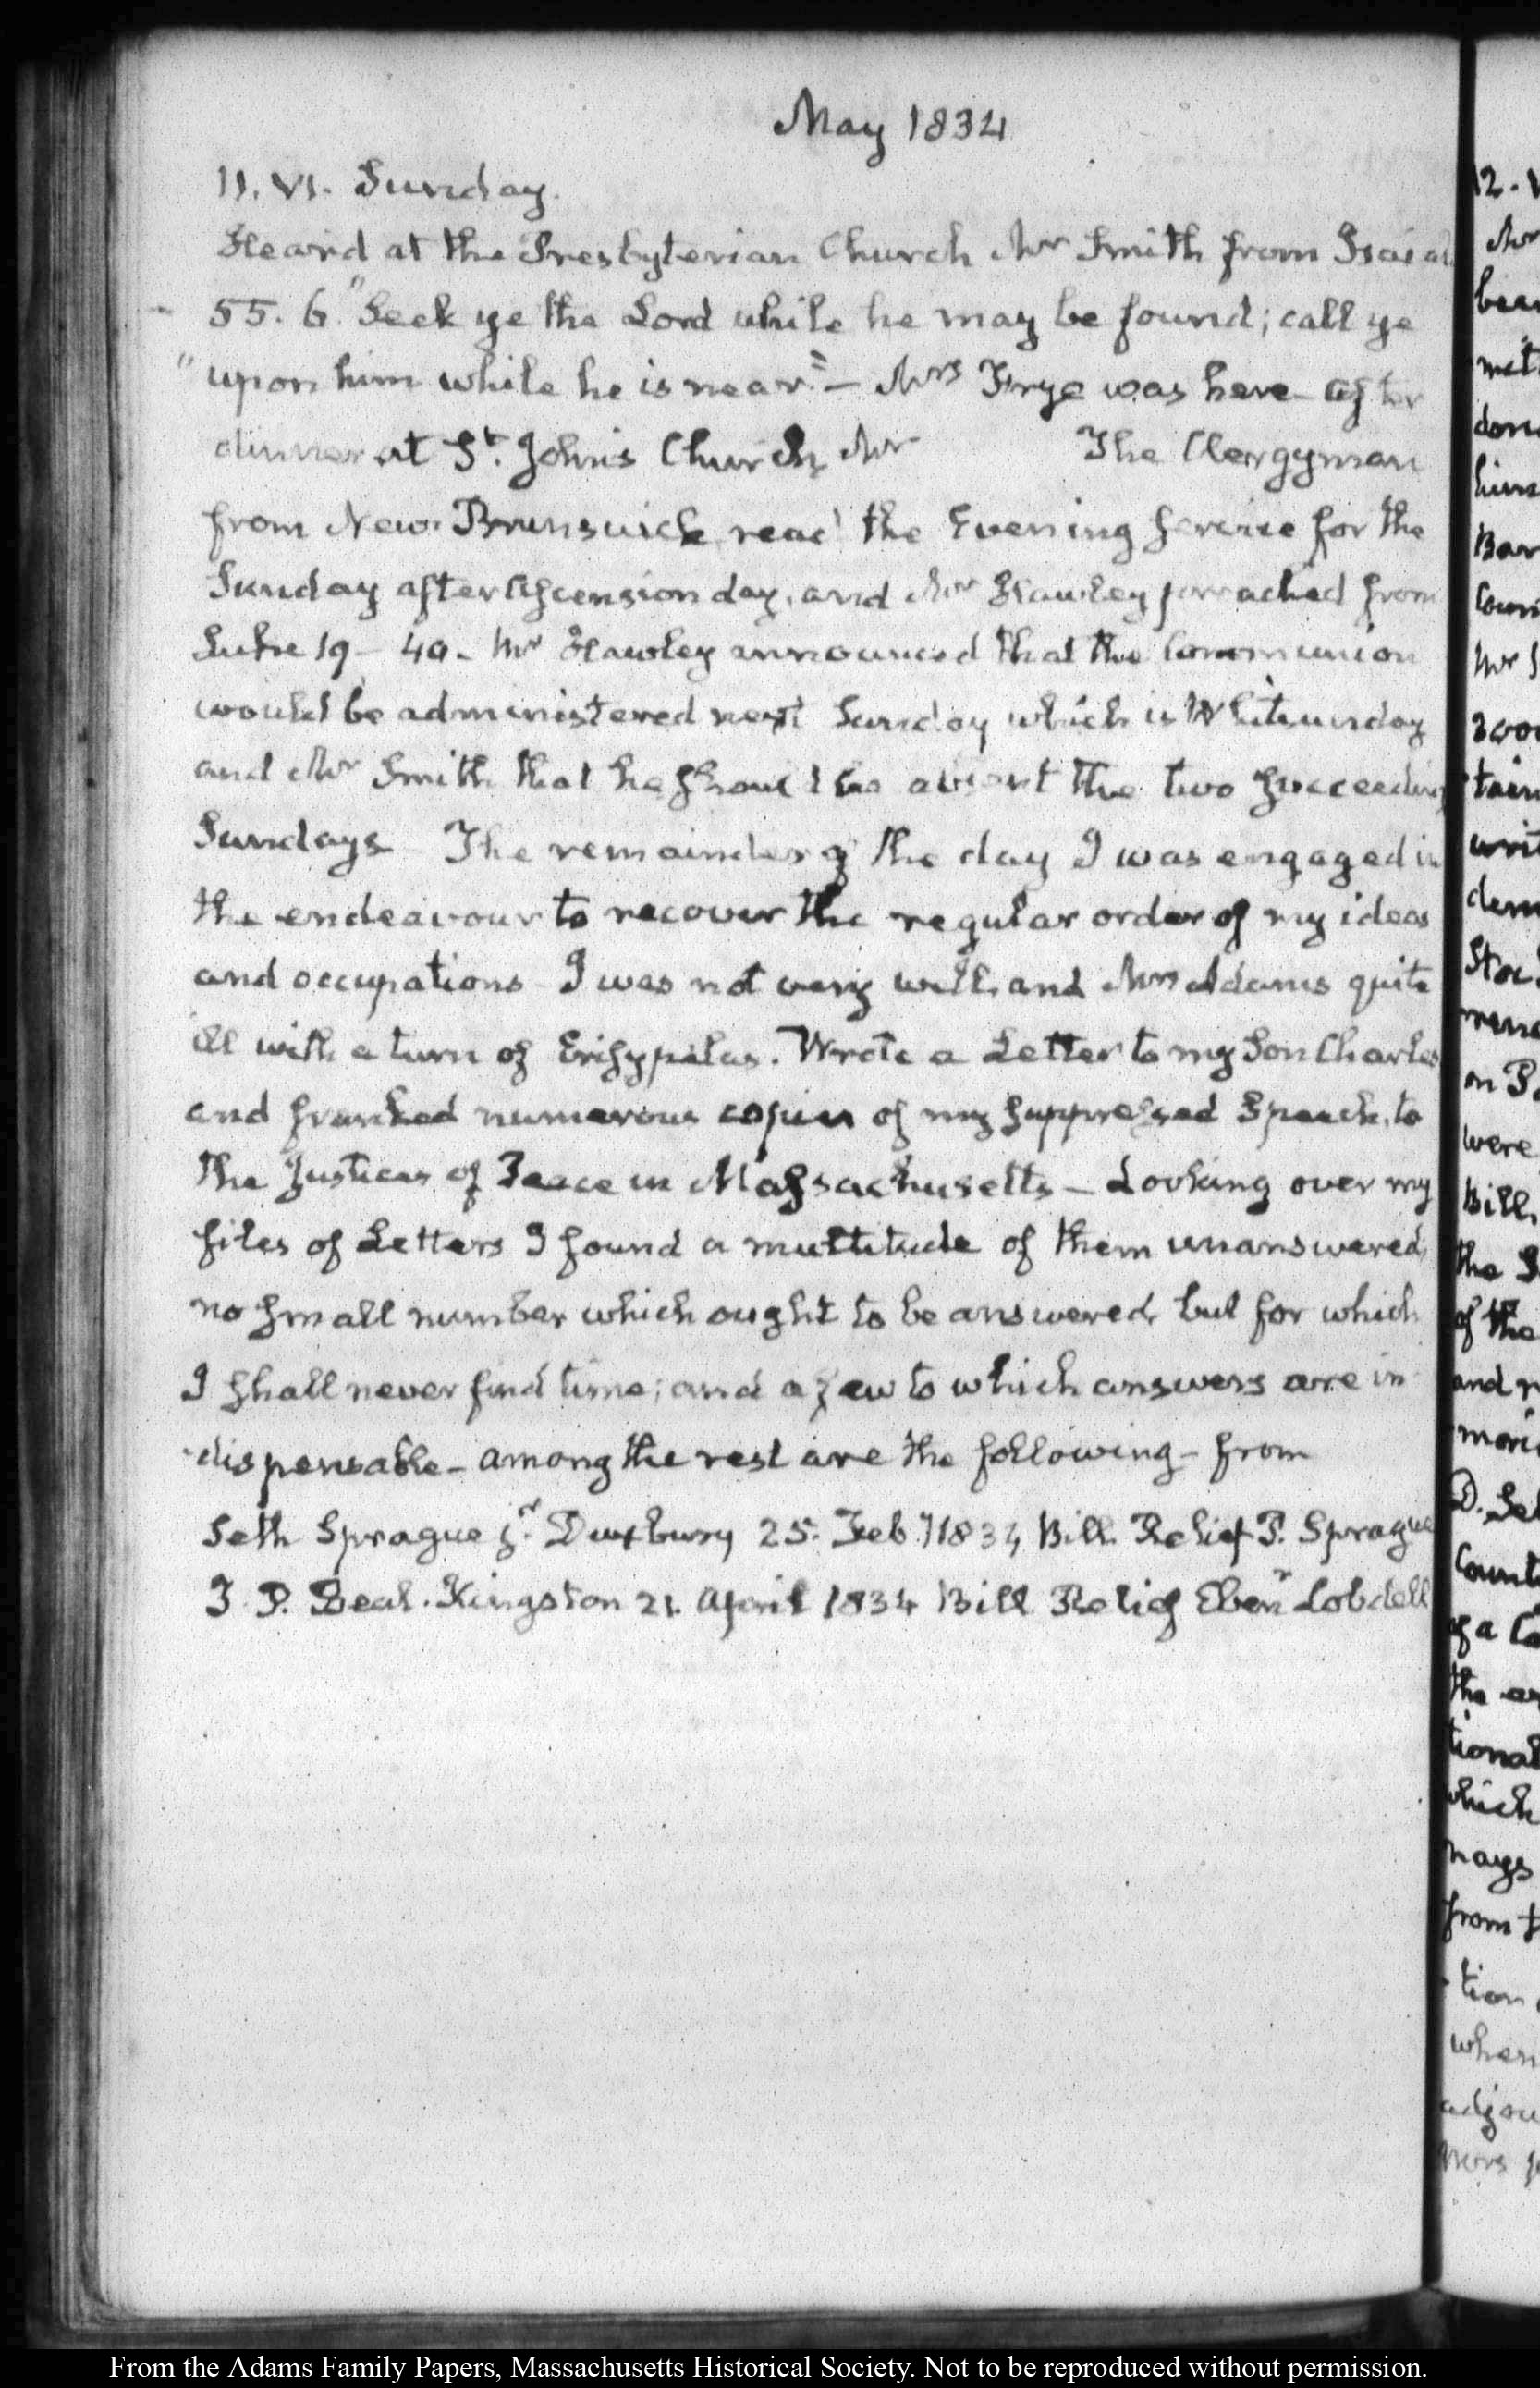 May 1834
11. VI. Sunday.
Heard at the Presbyterian Church Mr Smith from Isaiah
55. 6. "Seek ye the Lord while he may be found; call ye
"upon him while he is near."— Mrs Frye was here— after
dinner at St. John's Church Mr The Clergyman
from New-Brunswick read the Evening Service for the
Sunday after Ascension day, and Mr Hawley preached from
Luke 19- 40. Mr Hawley announced that the Communion
would be administered next Sunday which is Whitsunday
and Mr Smith that he should be absent the two succeeding
Sundays— The remainder of the day I was engaged in
the endeavour to recover the regular order of my ideas
and occupations— I was not very well, and Mrs Adams quite
ill with a turn of Erisypelas. Wrote a Letter to my Son Charles
and franked numerous copies of my suppressed Speech, to
the Justices of Peace in Massachusetts— Looking over my
files of Letters I found a multitude of them unanswered,
no small number which ought to be answered but for which
I shall never find time; and a few to which answers are in
-dispensable— among the rest are the following— from
Seth Sprague jr. Duxbury 25. Feb. 1834 Bill Relief P. Sprague
T. P. Beal. Kingston 21. April 1834 Bill Relief Ebenr Lobdell
12.
Mr
him
Mr
were
Bill
the
of the
and
of a
the
which
nays
from
tion
when
From the Adams Family Papers, Massachusetts Historical Society. Not to be reproduced without permission.